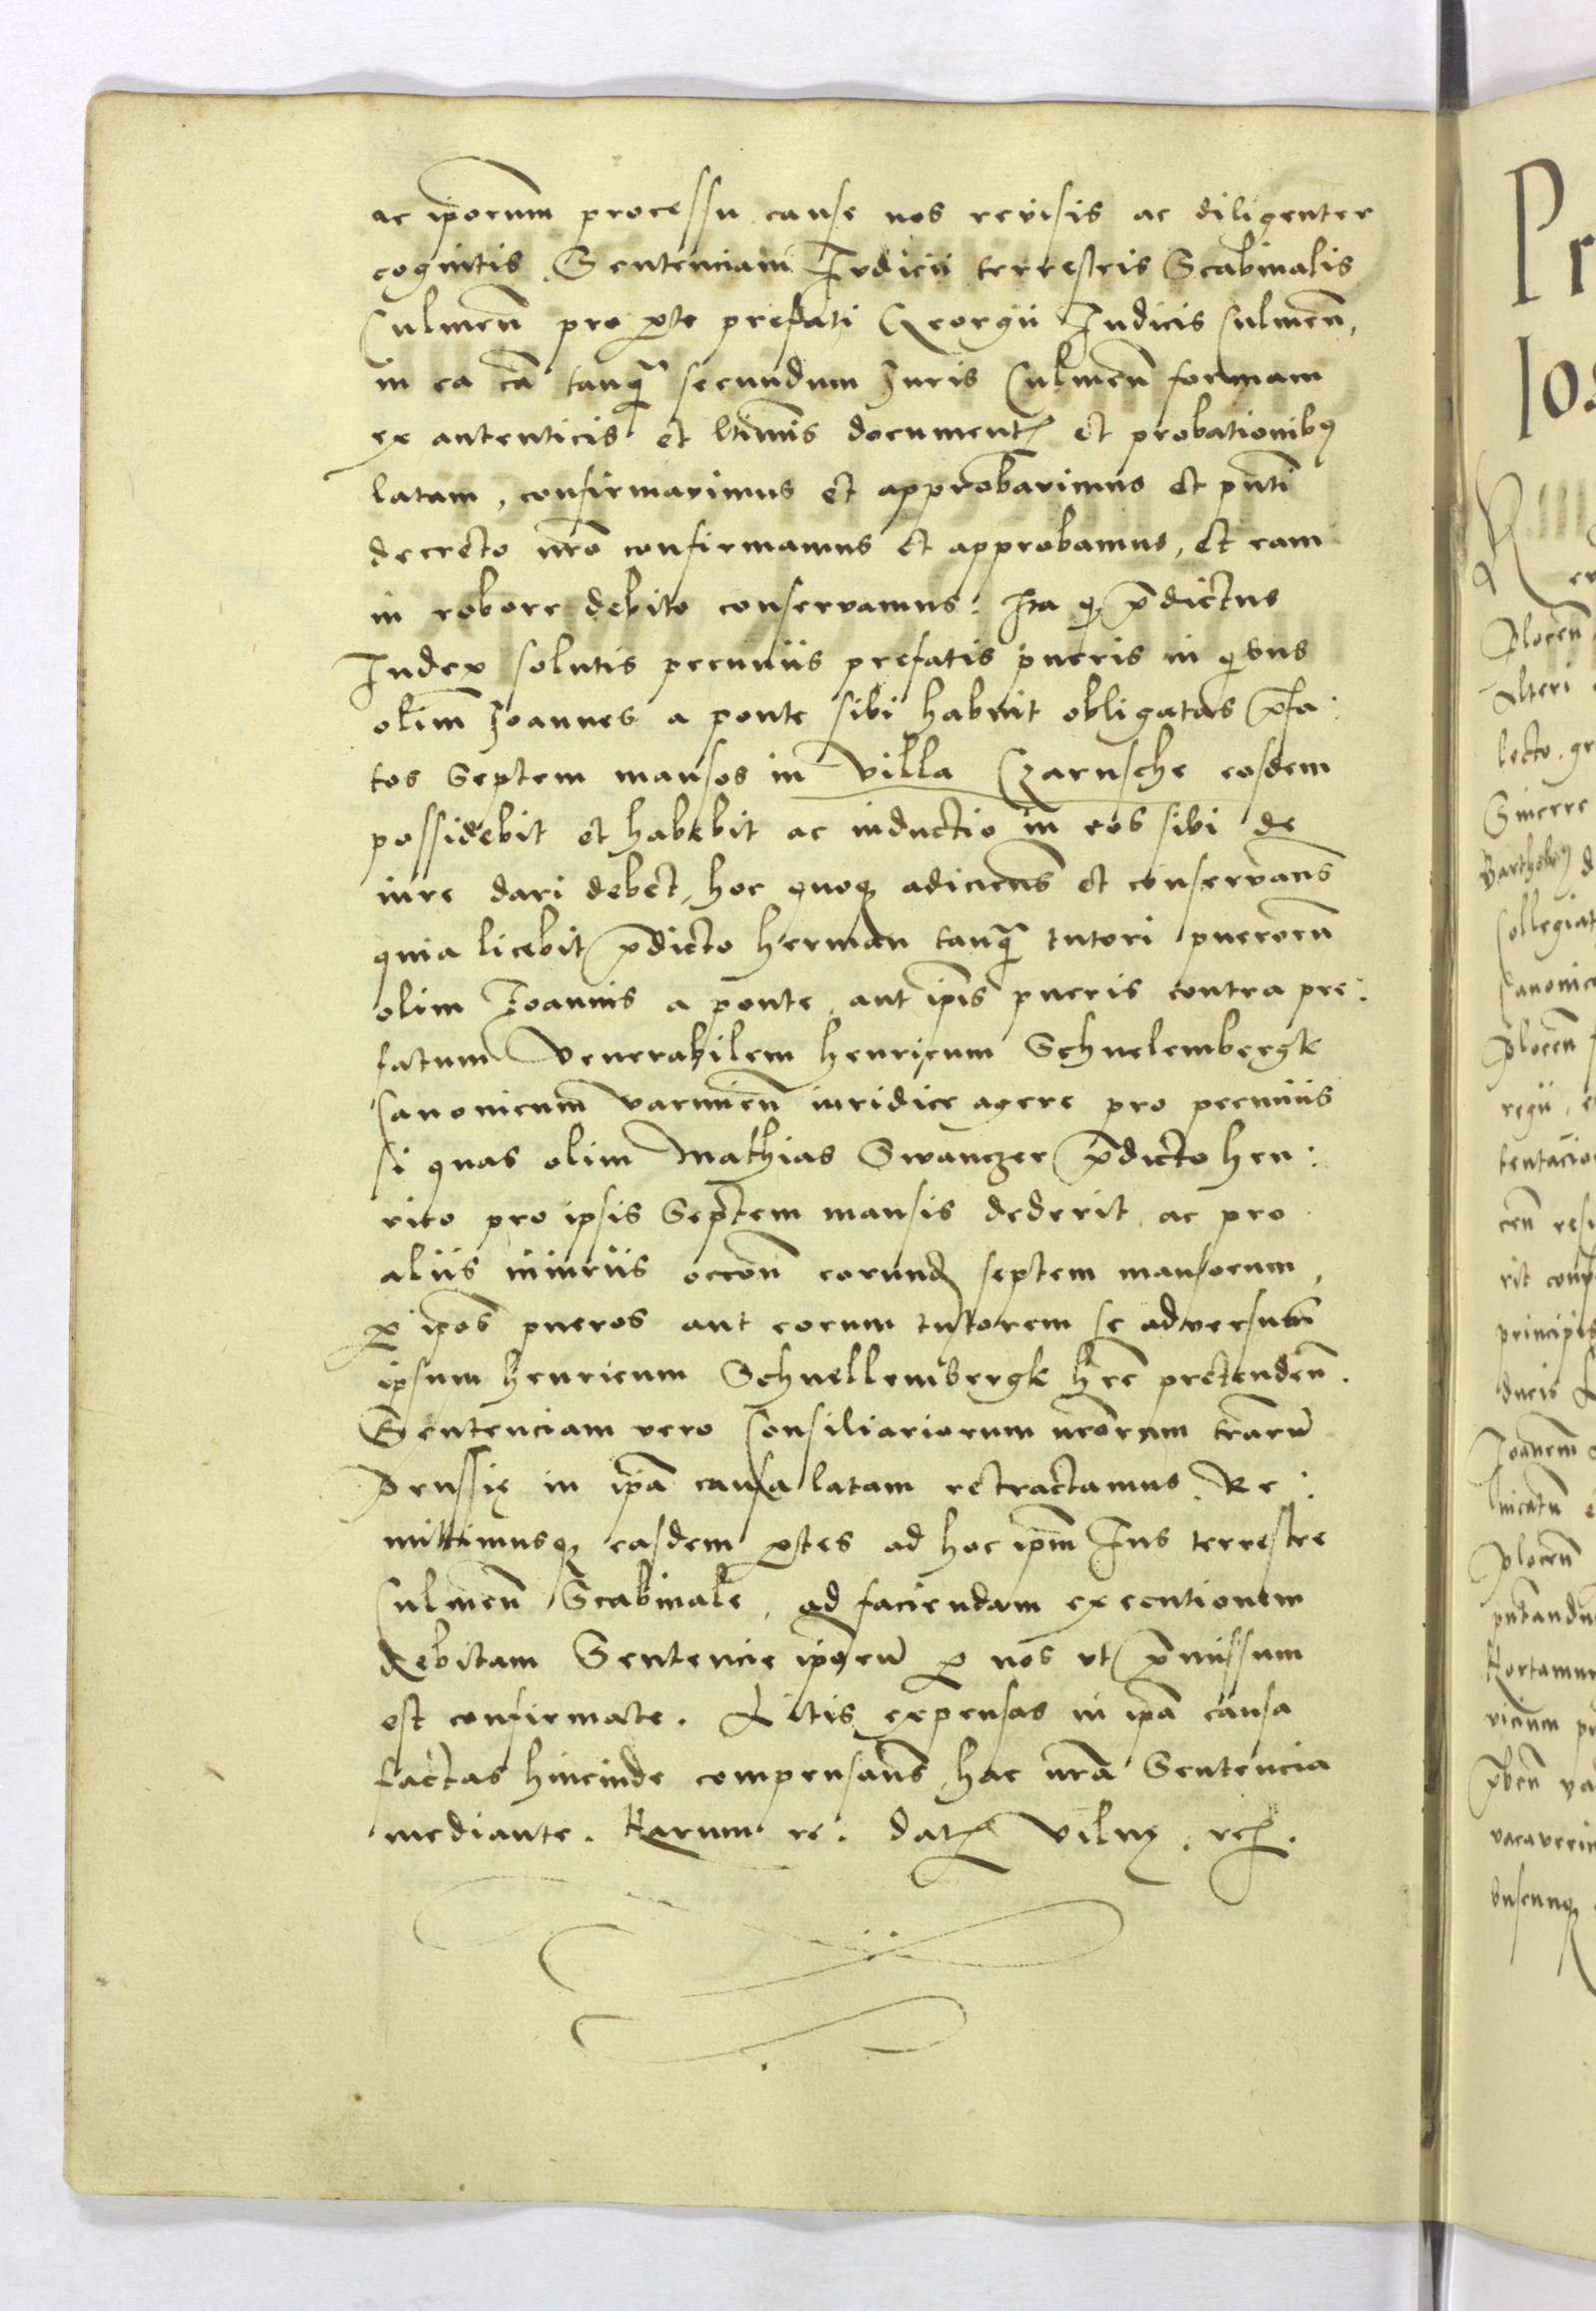 ac ip̄orum processu cause nos revisis ac diligenter
cognitis Sentenciam Iudicii terrestris Scabinalis
Culmen̄ pro ꝑte prefati Georgii Iudicis Culmen̄,
in ea cā tanqꝫ secundum Iuris Culmen̄ formam
ex autenticis et ltimis documentꝭ et probationibꝯ
latam, confirmavimus et approbavimus et pn̄ti
decreto nr̄o confirmamus et approbamus, et eam
in robore debito conservamus: Ita qꝫ p̄dictus
Iudex solutis pecuniis prefatis pueris in qͥbus
olim Ioannes a ponte sibi habuit obligatas p̄fa:
tos Septem mansos in Villa Czarnsche eosdem
possidebit et habebit ac inductio in eos sibi de
iure dari debet, hoc quoqꝫ adiicien̄s et conservan̄s
quia licebit p̄dicto Herman tanqꝫ tutori puerorū
olim Ioannis a ponte, aut ip̄is pueris contra pre:
fatum Venerabilem Henricum Schnelembergk
Canonicum Varmien̄ iuridice agere pro pecuniis
si quas olim Mathias Swanczer p̄dicto Hen:
rico pro ipsis Septem mansis dederit, ac pro
aliis iniuriis occōn̄ eorundꝫ septem mansorum,
ꝑ ip̄os pueros aut eorum tutorem se adversum
ipsum Henricum Schnellembergk hr̄e pretenden̄.
Sentenciam vero Consiliariorum nr̄orum tr̄arū
Prussię in ip̄a causa latam retractamus. Re:
mittimusqꝫ easdem ꝑtes ad hoc ip̄m Ius terrestre
Culmen̄ Scabinale, ad faciendam executionem
debitam Sentencie ip̄orū ꝑ nos ut p̄missum
est confirmate. Litis expensas in ip̄a causa
factas hincinde compensan̄s, hac nr̄a Sentencia
mediante. Harum rc̄. datꝭ Vilnę. rcꝭ.
Pr
Ios
R
Plocen̄
Alteri
lecto. gr
Sincere
Bartholoꝯ d
Collegiat
Canonic
Plocen̄
regii, e
tentacio
cen̄ resi
rit conf
principis
ducis L
Ioanem
Plocen̄
Hortamur
vicium pr
vacaverin